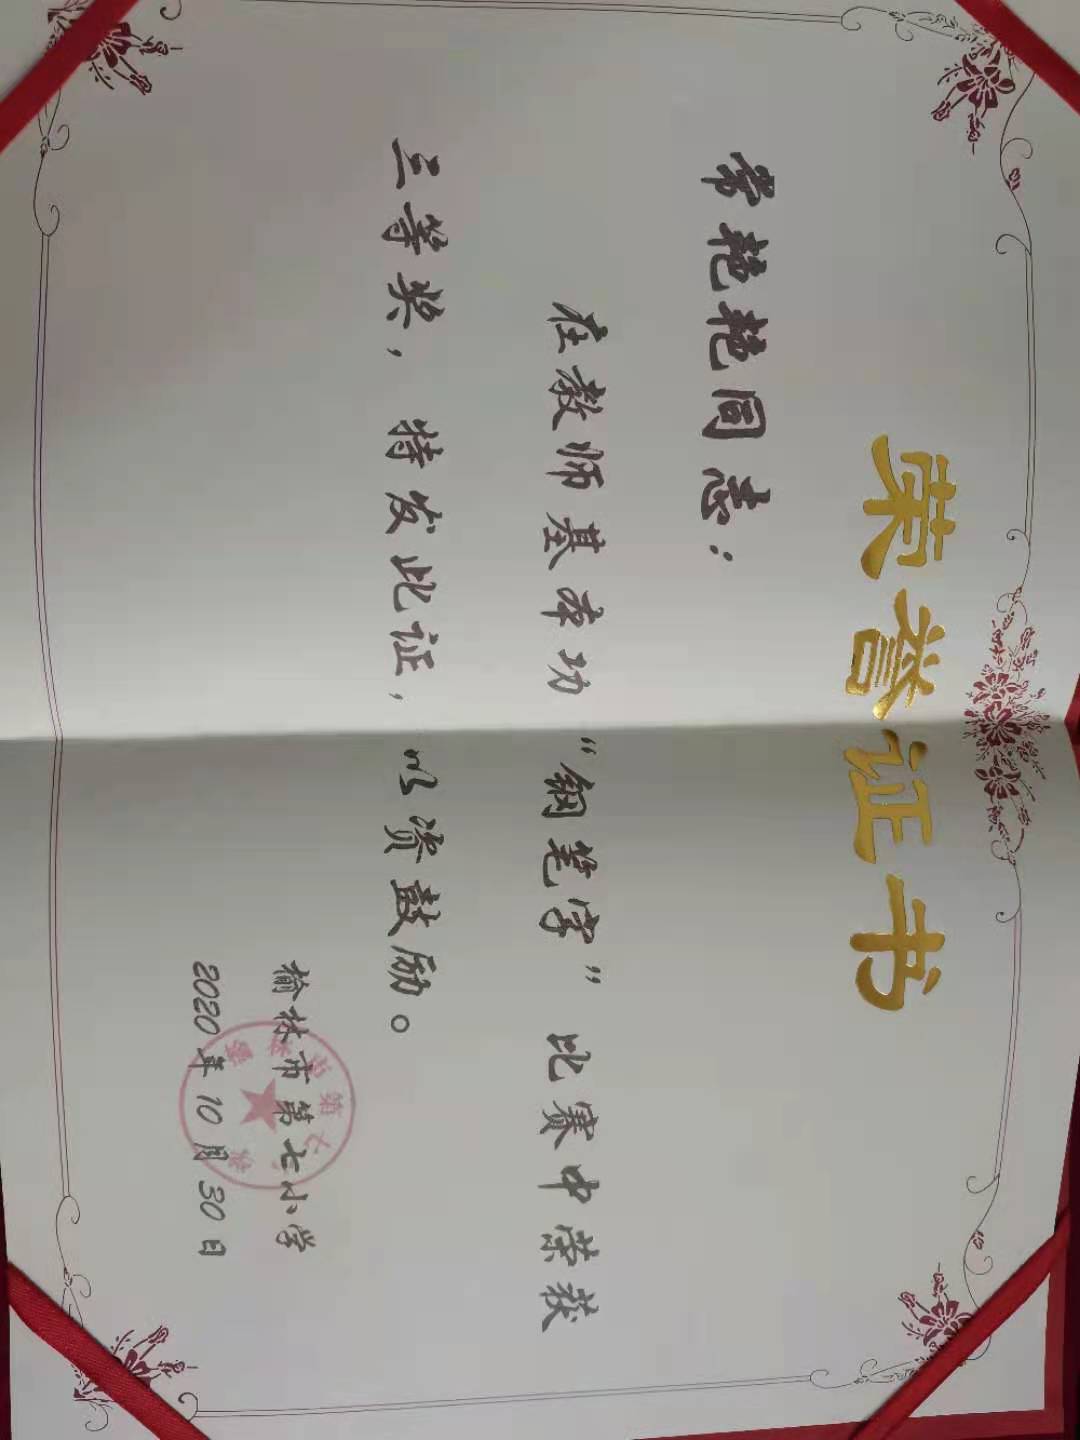 荣誉证书
常艳艳同志：
在教师基本功“钢笔字”比赛中荣获
三等奖，特发此证，以资鼓励。
榆林市第七小学
2020年10月30日